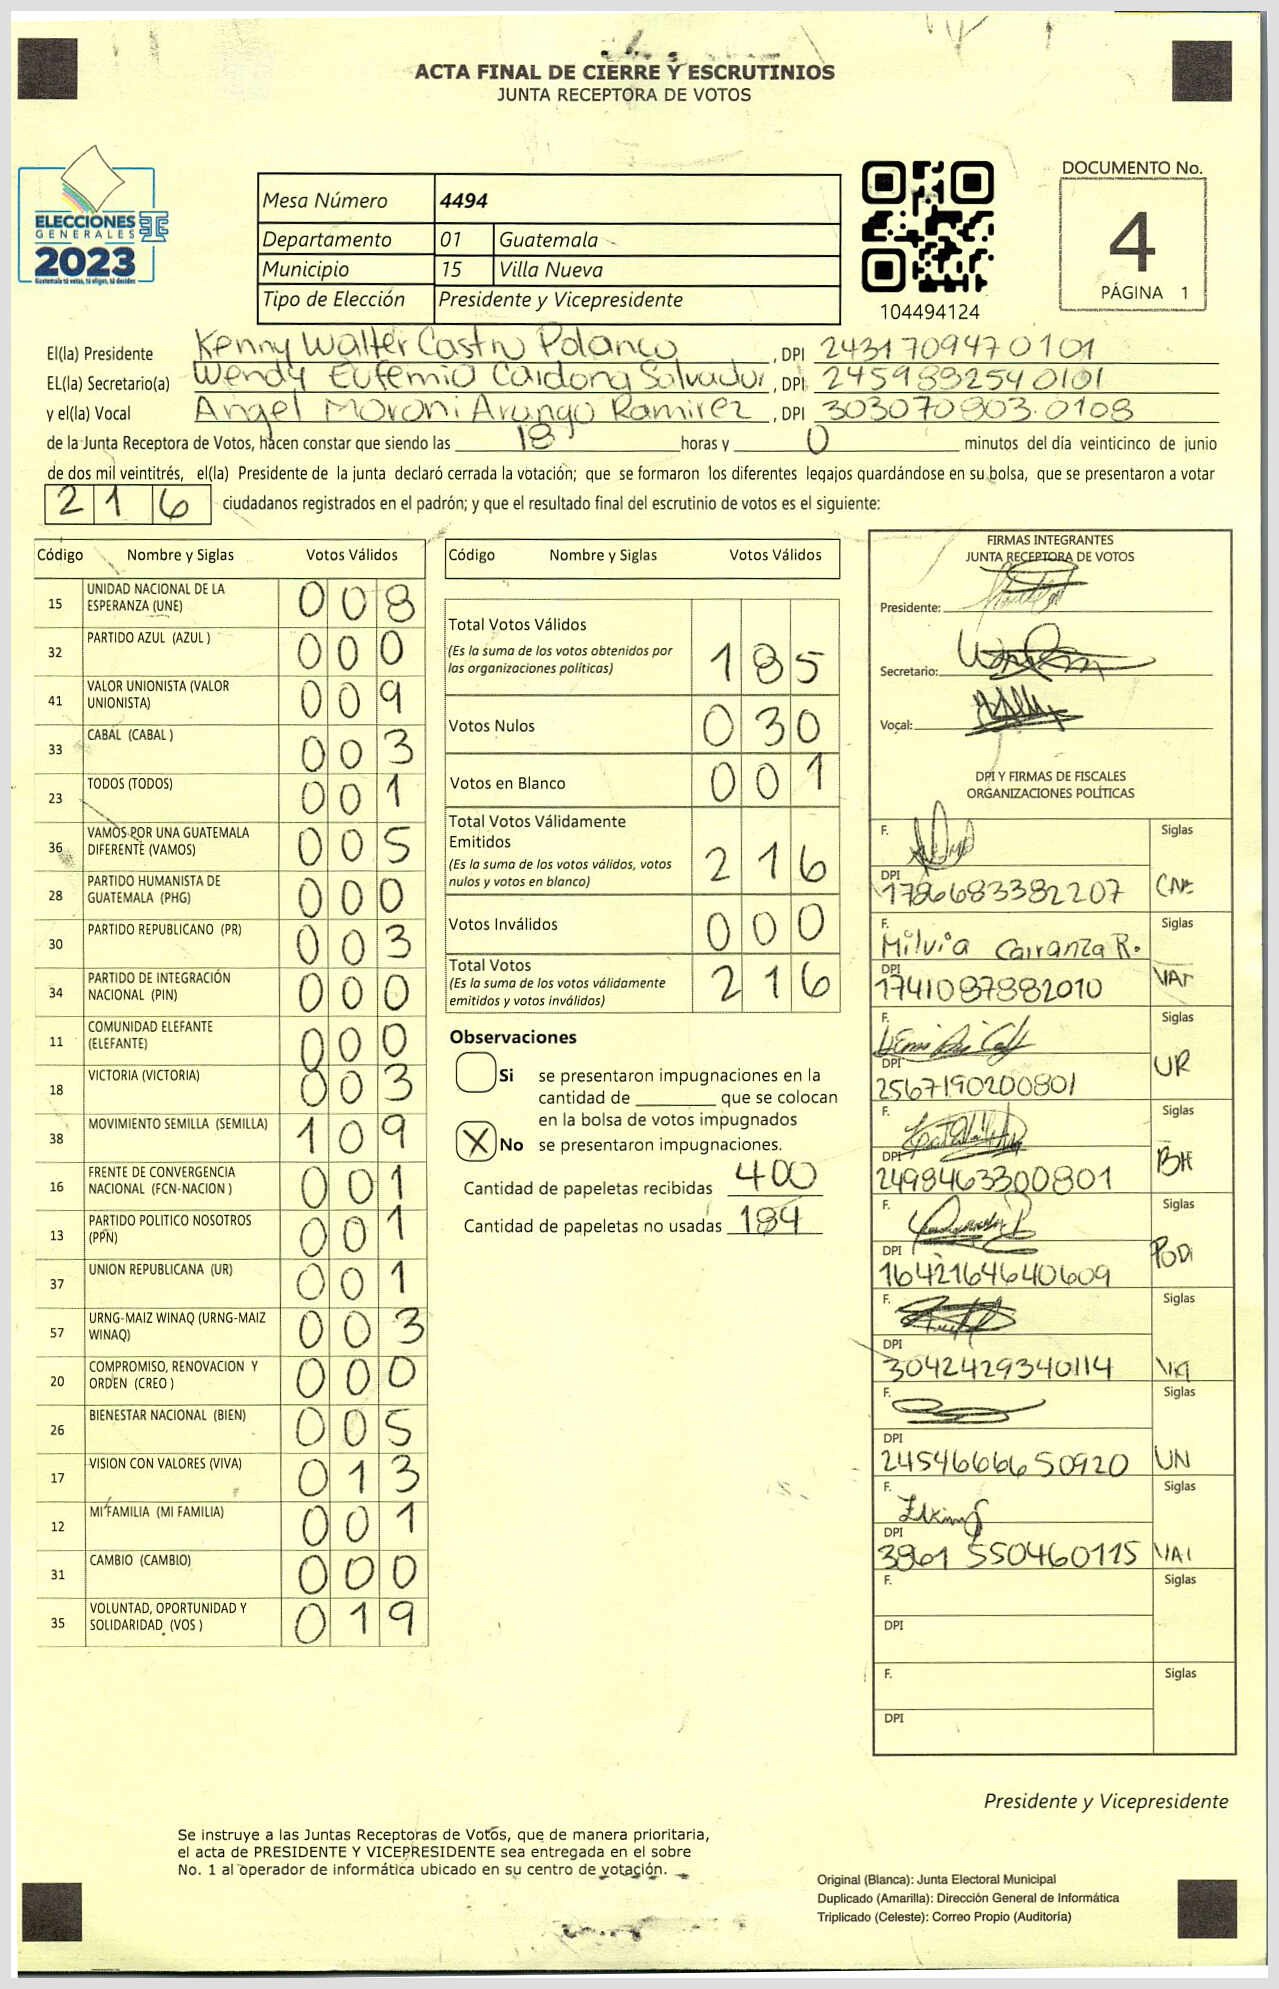 ACTA FINAL DE CIERRE Y ESCRUTINIOS
JUNTA RECEPTORA DE VOTOS
ELECCIONES
GENERALES
2023
Guatemala tú votas, tú eliges, tú decides
Mesa Número 4494
Departamento 01 Guatemala
Municipio 15 Villa Nueva
Tipo de Elección Presidente y Vicepresidente
104494124
DOCUMENTO No.
4
PÁGINA 1
El(la) Presidente Kenny Walter Castro Polanco, DPI 2431709470101
EL(la) Secretario(a) Wendy Eufemia Cardona Salvador, DPI 2459892540101
y el(la) Vocal Angel Moroni Arango Ramirez, DPI 303070803.0108
de la Junta Receptora de Votos, hacen constar que siendo las 18 horas y 0 minutos del día veinticinco de junio
de dos mil veintitrés, el(la) Presidente de la junta declaró cerrada la votación; que se formaron los diferentes legajos guardándose en su bolsa, que se presentaron a votar
216 ciudadanos registrados en el padrón; y que el resultado final del escrutinio de votos es el siguiente:
Código Nombre y Siglas Votos Válidos
15 UNIDAD NACIONAL DE LA ESPERANZA (UNE) 008
32 PARTIDO AZUL (AZUL ) 000
41 VALOR UNIONISTA (VALOR UNIONISTA) 009
33 CABAL (CABAL ) 003
23 TODOS (TODOS) 001
36 VAMOS POR UNA GUATEMALA DIFERENTE (VAMOS) 005
28 PARTIDO HUMANISTA DE GUATEMALA (PHG) 000
30 PARTIDO REPUBLICANO (PR) 003
34 PARTIDO DE INTEGRACIÓN NACIONAL (PIN) 000
11 COMUNIDAD ELEFANTE (ELEFANTE) 000
18 VICTORIA (VICTORIA) 003
38 MOVIMIENTO SEMILLA (SEMILLA) 109
16 FRENTE DE CONVERGENCIA NACIONAL (FCN-NACION ) 001
13 PARTIDO POLITICO NOSOTROS (PPN) 001
37 UNION REPUBLICANA (UR) 001
57 URNG-MAIZ WINAQ (URNG-MAIZ WINAQ) 003
20 COMPROMISO, RENOVACION Y ORDEN (CREO ) 000
26 BIENESTAR NACIONAL (BIEN) 005
17 VISION CON VALORES (VIVA) 013
12 MI FAMILIA (MI FAMILIA) 001
31 CAMBIO (CAMBIO) 000
35 VOLUNTAD, OPORTUNIDAD Y SOLIDARIDAD (VOS ) 019
Código Nombre y Siglas Votos Válidos
Total Votos Válidos
(Es la suma de los votos obtenidos por las organizaciones políticas) 185
Votos Nulos 030
Votos en Blanco 001
Total Votos Válidamente Emitidos
(Es la suma de los votos válidos, votos nulos y votos en blanco) 216
Votos Inválidos 000
Total Votos
(Es la suma de los votos válidamente emitidos y votos inválidos) 216
Observaciones
Si se presentaron impugnaciones en la
cantidad de ________ que se colocan
en la bolsa de votos impugnados
X No se presentaron impugnaciones.
Cantidad de papeletas recibidas 400
Cantidad de papeletas no usadas 184
FIRMAS INTEGRANTES
JUNTA RECEPTORA DE VOTOS
Presidente:
Secretario:
Vocal:
DPI Y FIRMAS DE FISCALES
ORGANIZACIONES POLÍTICAS
F. Siglas
DPI
1786683382207
F. Milvia Carranza R. Siglas
DPI
1741087882010
F. Siglas
DPI UR
2567190200801
F. Siglas
DPI
2498463300801
F. Siglas
DPI PODI
1642164640609
F. Siglas
DPI
3042429340114
F. Siglas
DPI
2454666650920 UN
F. Siglas
DPI
3861550460115
F. Siglas
DPI
F. Siglas
DPI
Presidente y Vicepresidente
Se instruye a las Juntas Receptoras de Votos, que de manera prioritaria,
el acta de PRESIDENTE Y VICEPRESIDENTE sea entregada en el sobre
No. 1 al operador de informática ubicado en su centro de votación.
Original (Blanca): Junta Electoral Municipal
Duplicado (Amarilla): Dirección General de Informática
Triplicado (Celeste): Correo Propio (Auditoría)